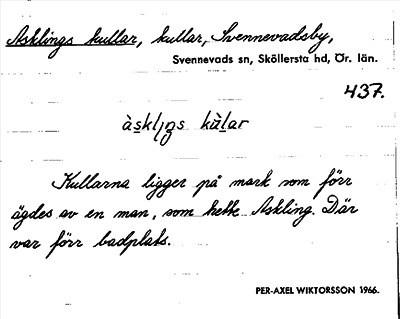 Asklings kullar, kullar, Svennevadsby,
Svennevads sn, Sköllersta hd, Ör. län.
437.
àsklıŋs kùlar
Kullarna ligger på mark som förr
ägdes av en man, som hette Askling. Där
var förr badplats.
PER-AXEL WIKTORSSON 1966.